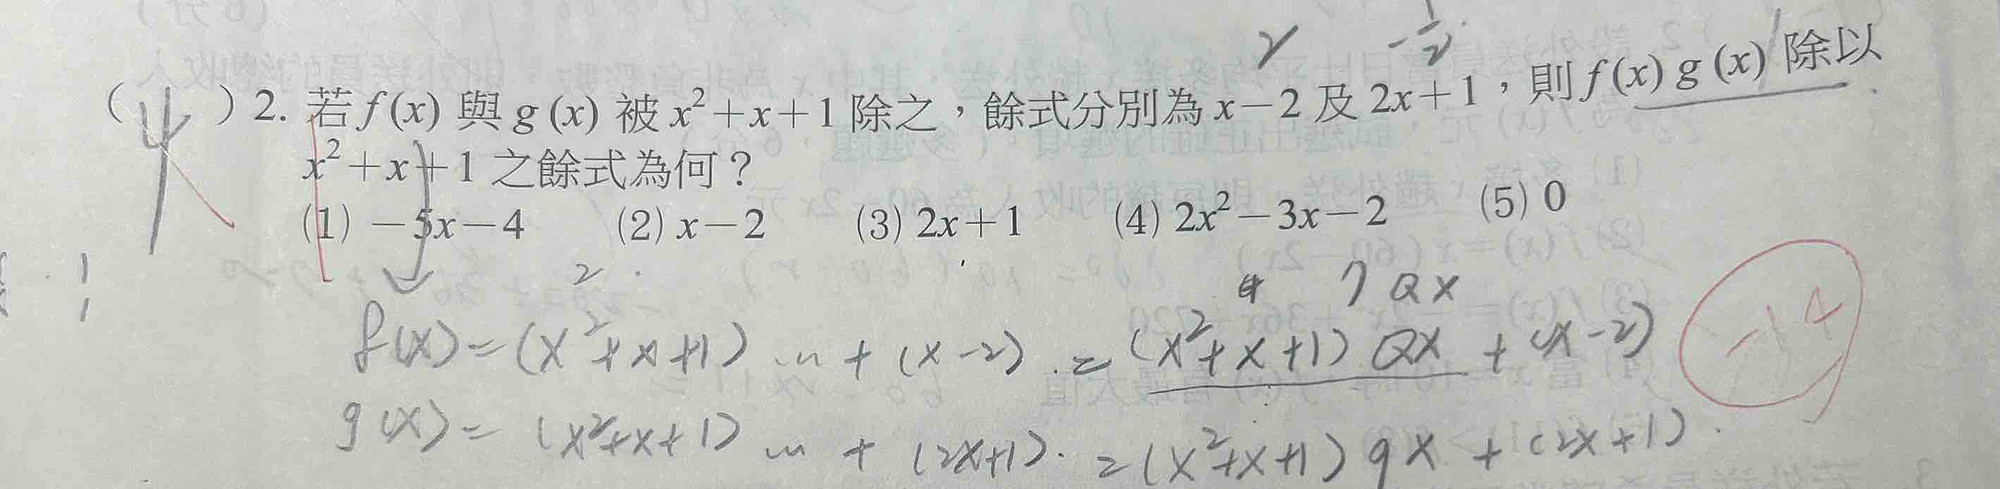 2  -1/2
(4)2. 若 f(x) 與 g(x) 被 x²+x+1 除之，餘式分別為 x-2 及 2x+1，則 f(x)g(x) 除以
x²+x+1 之餘式為何？
(1) -5x-4 (2) x-2 (3) 2x+1 (4) 2x²-3x-2 (5) 0
f(x)=(x²+x+1) … +(x-2).=(x²+x+1) Qx +(x-2)
-14
g(x)=(x²+x+1) … +(2x+1).=(x²+x+1) qx +(2x+1).